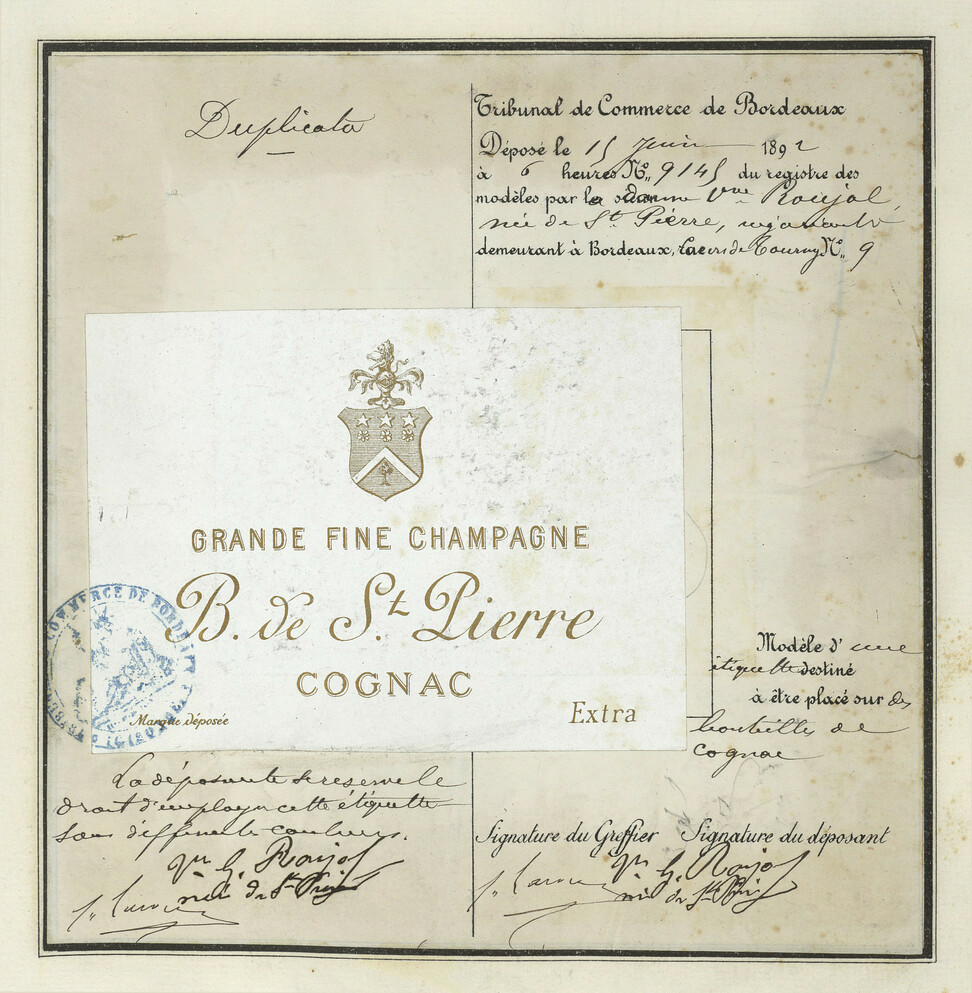 Duplicata
Tribunal de Commerce de Bordeaux
Déposé le 15 Juin 1892
à 6 heures N° 9145 du registre des
modèles par la dame Vve Roujol,
née de St Pierre, négociante
demeurant à Bordeaux, Cours de Tourny N° 9
GRANDE FINE CHAMPAGNE
B. de St. Pierre
COGNAC
Marque déposée
Extra
COMMERCE DE BORDEAUX
Modèle d' une
étiquette destiné
à être placé sur des
bouteilles de
cognac
La déposante se reserve le
droit d'employer cette étiquette
sous différentes couleurs.
Vve G. Roujol
née de St Pierre
Signature du Greffier Signature du déposant
Vve G. Roujol
née de St Pierre